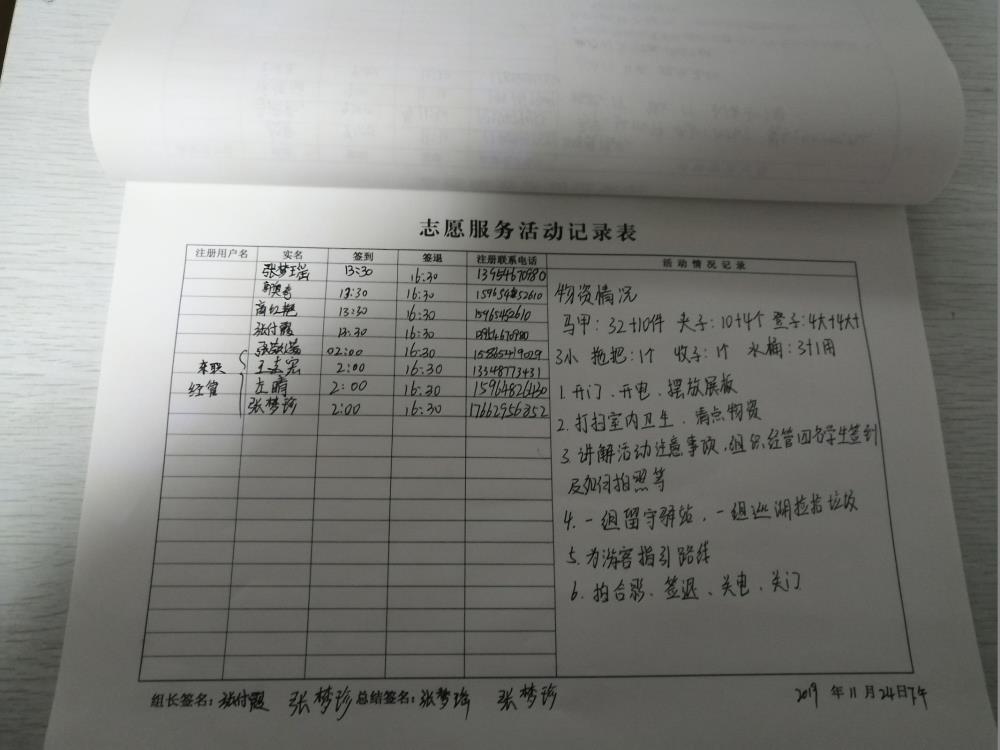 志愿服务活动记录表
注册用户名 实名 签到 签退 注册联系电话 活动情况记录
张梦瑶 13:30 16:30 13954670980
13:30 16:30
商红艳 13:30 16:30 15965452610
张付霞 13:30 16:30
02:00 16:30
来联 王志宏 2:00 16:30 13348773431
经管 方晴 2:00 16:30 15964826430
张梦珍 2:00 16:30 17662956352
物资情况
马甲:32+10件 夹子:10+4个 登子:4大+4大+
3小 拖把:1个 收子:1个 水桶:3+1用
1.开门、开电、摆放展板
2.打扫室内卫生、清点物资
3.讲解活动注意事项、组织经管四名学生签到
及如何拍照等
4.一组留守驿站、一组巡湖捡拾垃圾
5.为游客指引路线
6.拍合影、签退、关电、关门
组长签名:张付霞 张梦珍 总结签名:张梦瑶 张梦珍
2019 年 11 月 24 日下午